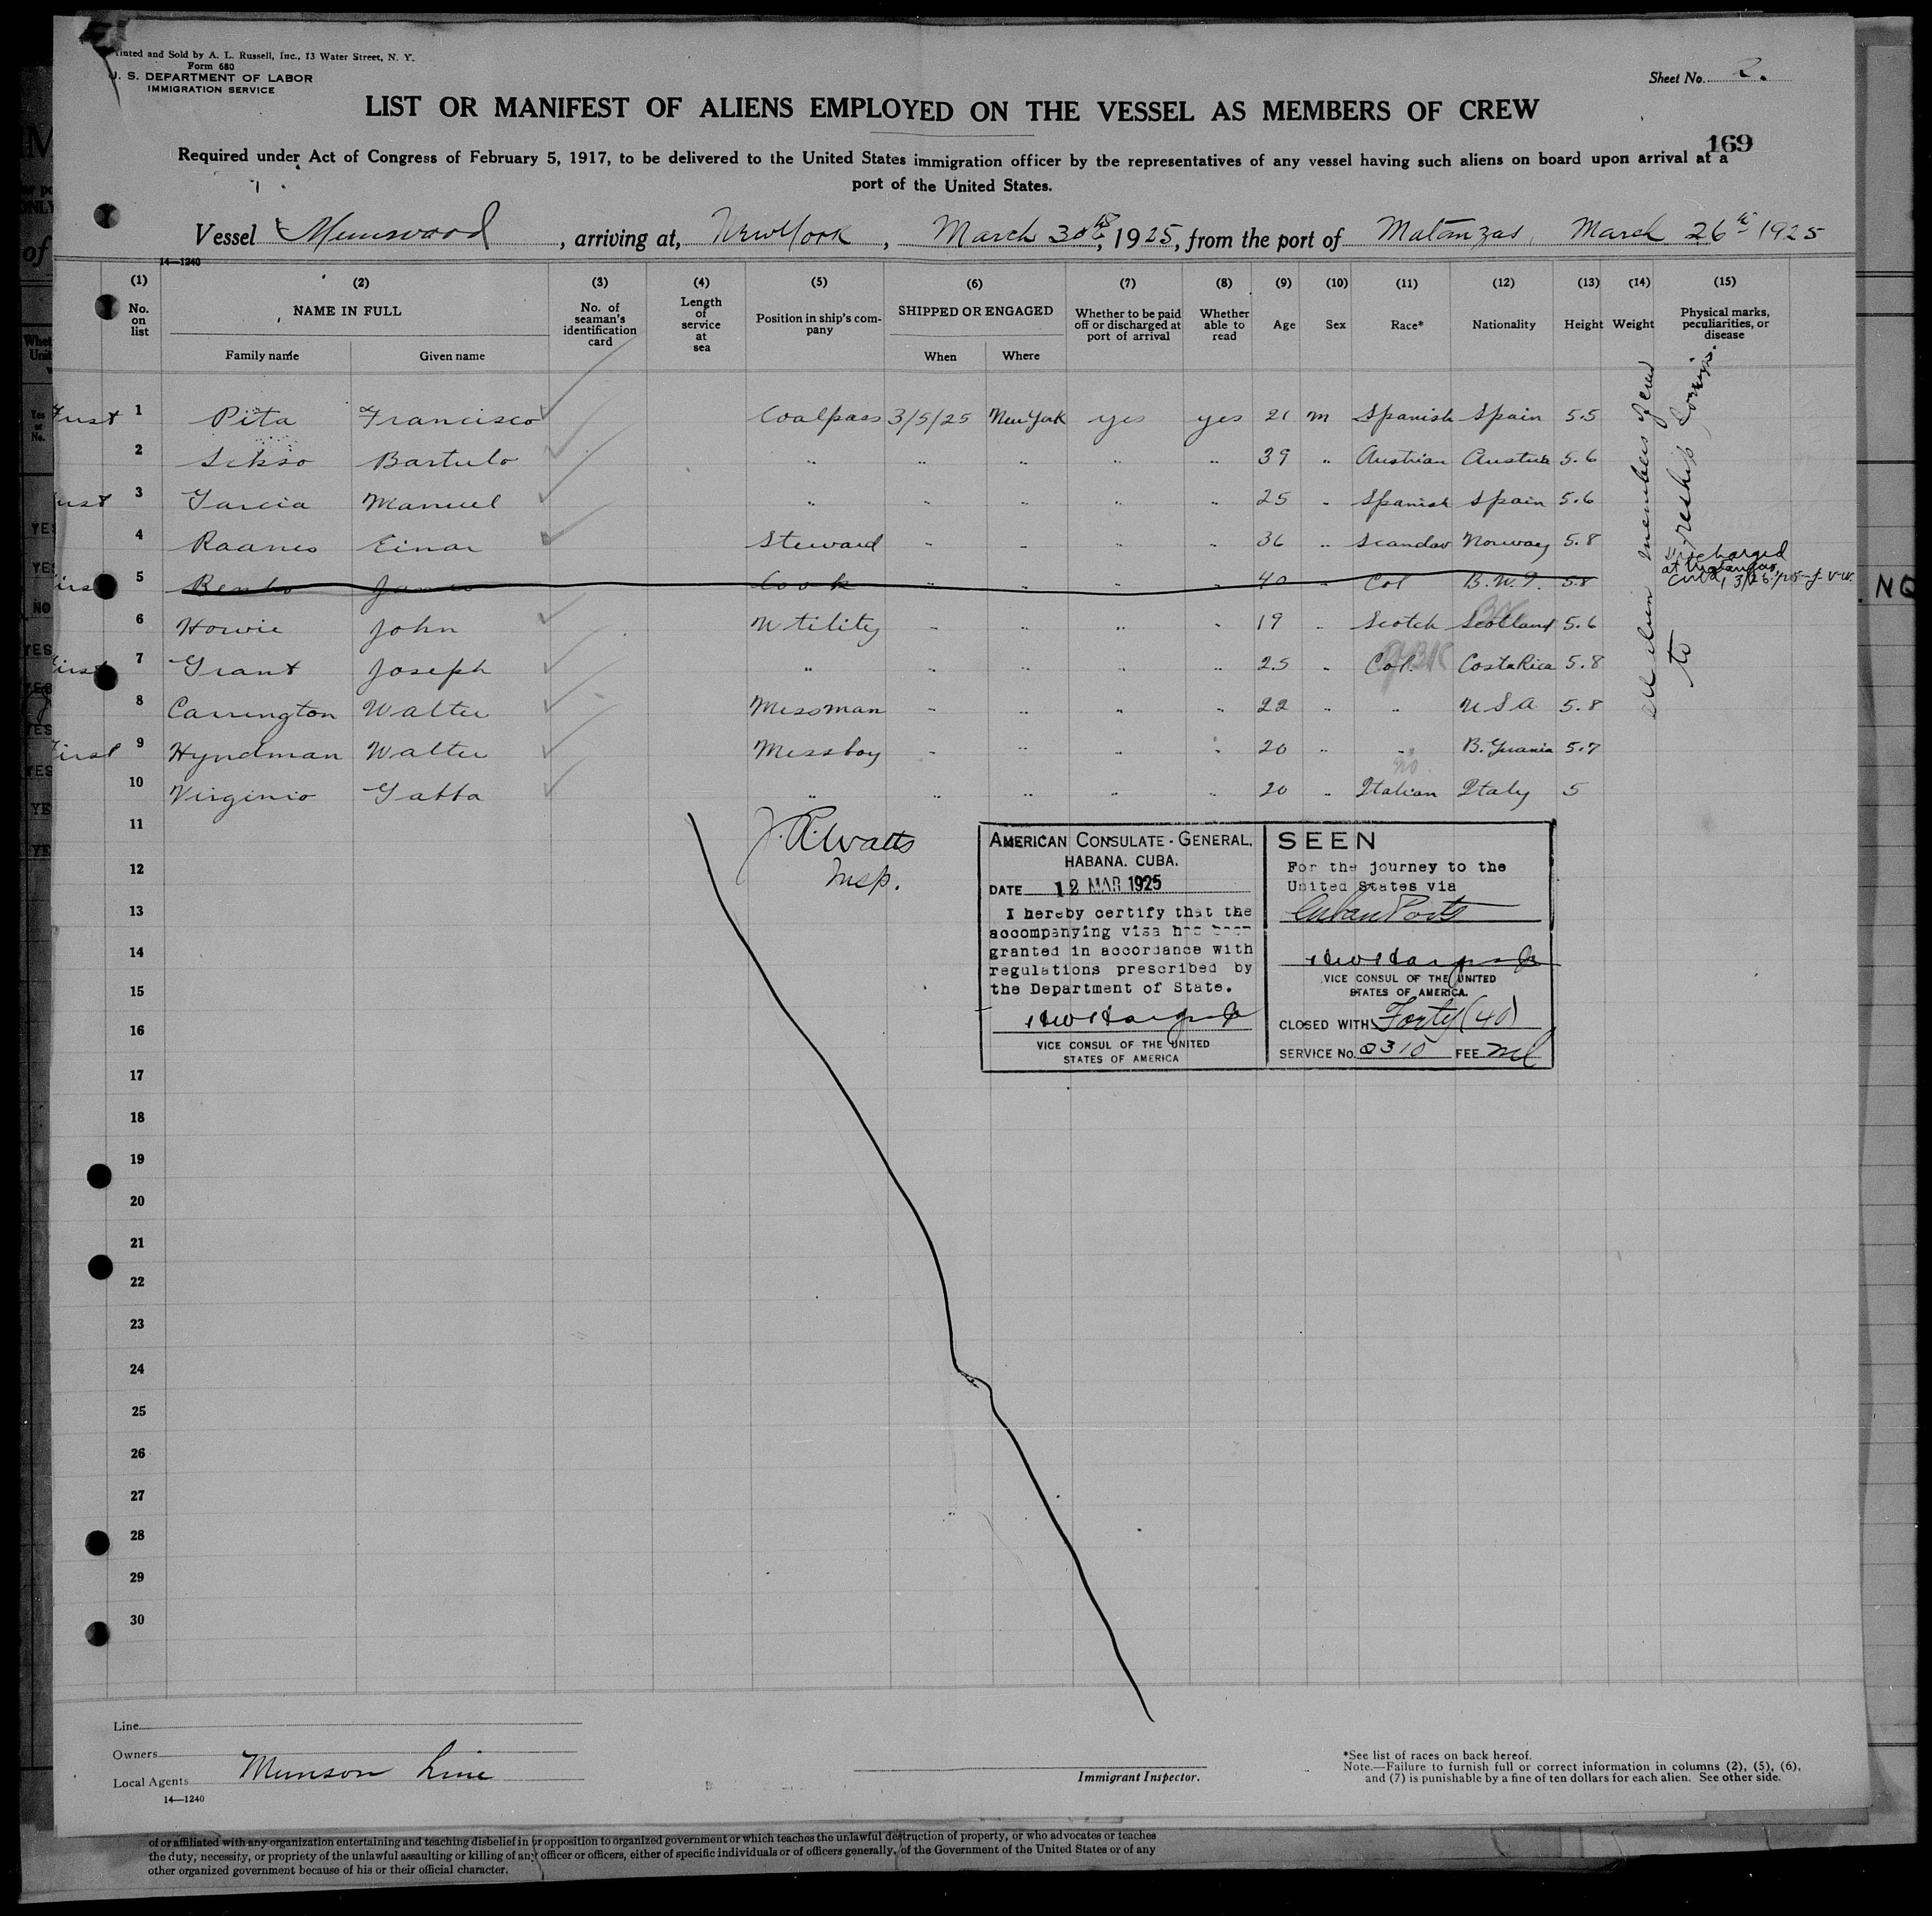 Printed and Sold by A. L. Russell, Inc., 13 Water Street, N. Y.
Form 680
U. S. DEPARTMENT OF LABOR
IMMIGRATION SERVICE
Sheet No. 2.
LIST OR MANIFEST OF ALIENS EMPLOYED ON THE VESSEL AS MEMBERS OF CREW
169
Required under Act of Congress of February 5, 1917, to be delivered to the United States immigration officer by the representatives of any vessel having such aliens on board upon arrival at a
port of the United States.
Vessel Munwood, arriving at, New York, March 30th, 1925, from the port of Matanzas, March 26th 1925
14—1240
(1) (2) (3) (4) (5) (6) (7) (8) (9) (10) (11) (12) (13) (14) (15)
No. on list
NAME IN FULL
Family name
Given name
No. of seaman's identification card
Length of service at sea
Position in ship's company
SHIPPED OR ENGAGED
When
Where
Whether to be paid off or discharged at port of arrival
Whether able to read
Age
Sex
Race*
Nationality
Height
Weight
Physical marks, peculiarities, or disease
First 1 Pita Francisco Coalpass 3/5/25 New York yes yes 21 m Spanish Spain 5.5
2 Bartulo " " " " " 39 " Austrian Austria 5.6
3 Garcia Manuel " " " " " 25 " Spanish Spain 5.6
4 Raanes Einar Steward " " " " 36 " Scandav Norway 5.8
5 James Cook " " " " 40 " Col B.W.I. 5.8 Discharged at Matanzas, Cuba, 3/26/25
6 Howie John Utility " " " " 19 " Scotch Scotland 5.6
First 7 Grant Joseph " " " " " 25 " Col. Costa Rica 5.8
8 Carrington Walter Messman " " " " 22 " " U S A 5.8
First 9 Hyndman Walter Messboy " " " " 20 " " B. Guania 5.7
10 Virginio Gatta " " " " " 20 " Italian Italy 5
All alien members of crew
to reship foreign.
11
12
13
14
15
16
17
18
19
20
21
22
23
24
25
26
27
28
29
30
J. R. Watts
Insp.
AMERICAN CONSULATE-GENERAL,
HABANA. CUBA.
DATE 12 MAR 1925
I hereby certify that the
accompanying visa has been
granted in accordance with
regulations prescribed by
the Department of State.
VICE CONSUL OF THE UNITED
STATES OF AMERICA
SEEN
For the journey to the
United States via
Cuban Ports
VICE CONSUL OF THE UNITED
STATES OF AMERICA.
CLOSED WITH Forty (40)
SERVICE No. 2310 FEE nil
Line
Owners
Local Agents Munson Line
14—1240
Immigrant Inspector.
*See list of races on back hereof.
Note.—Failure to furnish full or correct information in columns (2), (5), (6),
and (7) is punishable by a fine of ten dollars for each alien. See other side.
of or affiliated with any organization entertaining and teaching disbelief in or opposition to organized government or which teaches the unlawful destruction of property, or who advocates or teaches
the duty, necessity, or propriety of the unlawful assaulting or killing of any officer or officers, either of specific individuals or of officers generally, of the Government of the United States or of any
other organized government because of his or their official character.